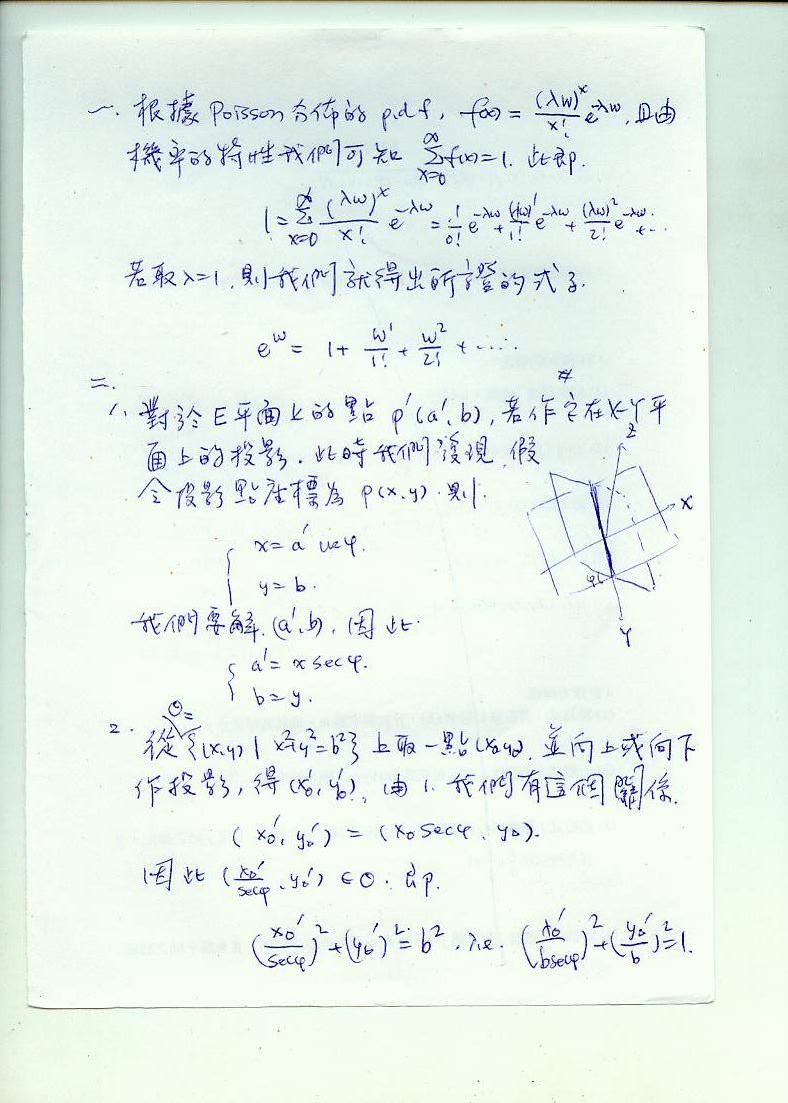 一. 根據 Poisson 分佈的 p.d.f, f(x) = (λw)^x/x! e^-λw, 且由
機率的特性我們可知 ∞Σx=0 f(x)=1. 此即.
1 = ∞Σx=0 (λw)^x/x! e^-λw = 1/0! e^-λw + (λw)^1/1! e^-λw + (λw)^2/2! e^-λw + ...
若取λ=1, 則我們就得出所要證的式子.
e^w = 1 + w^1/1! + w^2/2! + .....
#
二.
1、對於E平面上的點 p'(a', b), 若作它在X-Y平
面上的投影. 此時我們發現, 假
令投影點座標為 p(x,y). 則.
{ x = a' cosφ.
y = b.
我們要解 (a', b), 因此.
{ a' = x secφ.
b = y.
Z
X
φ
Y
Θ=
2. 從 {(x,y) | x²+y²=b²} 上取一點(x₀,y₀), 並向上或向下
作投影, 得 (x₀', y₀'), 由 1. 我們有這個關係.
(x₀', y₀') = (x₀ secφ, y₀).
因此 (x₀'/secφ, y₀') ∈ Θ. 即.
(x₀'/secφ)² + (y₀')² = b². i.e. (x₀'/bsecφ)² + (y₀'/b)² = 1.